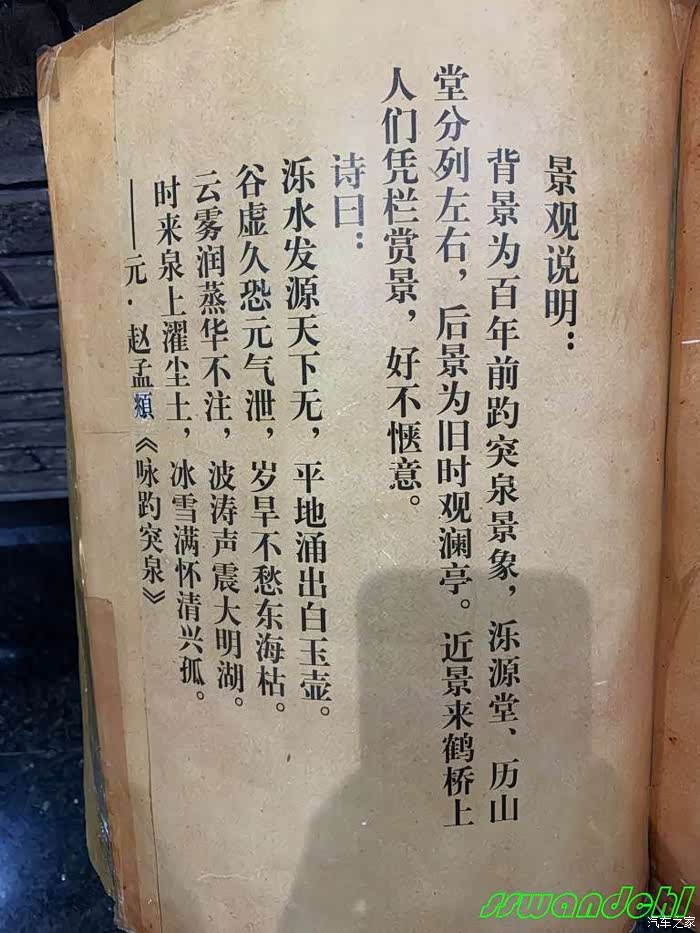 景观说明：
背景为百年前趵突泉景象，泺源堂、历山
堂分列左右，后景为旧时观澜亭。近景来鹤桥上
人们凭栏赏景，好不惬意。
诗曰：
泺水发源天下无，平地涌出白玉壶。
谷虚久恐元气泄，岁旱不愁东海枯。
云雾润蒸华不注，波涛声震大明湖。
时来泉上濯尘土，冰雪满怀清兴孤。
——元·赵孟頫《咏趵突泉》
sswandchl
汽车之家